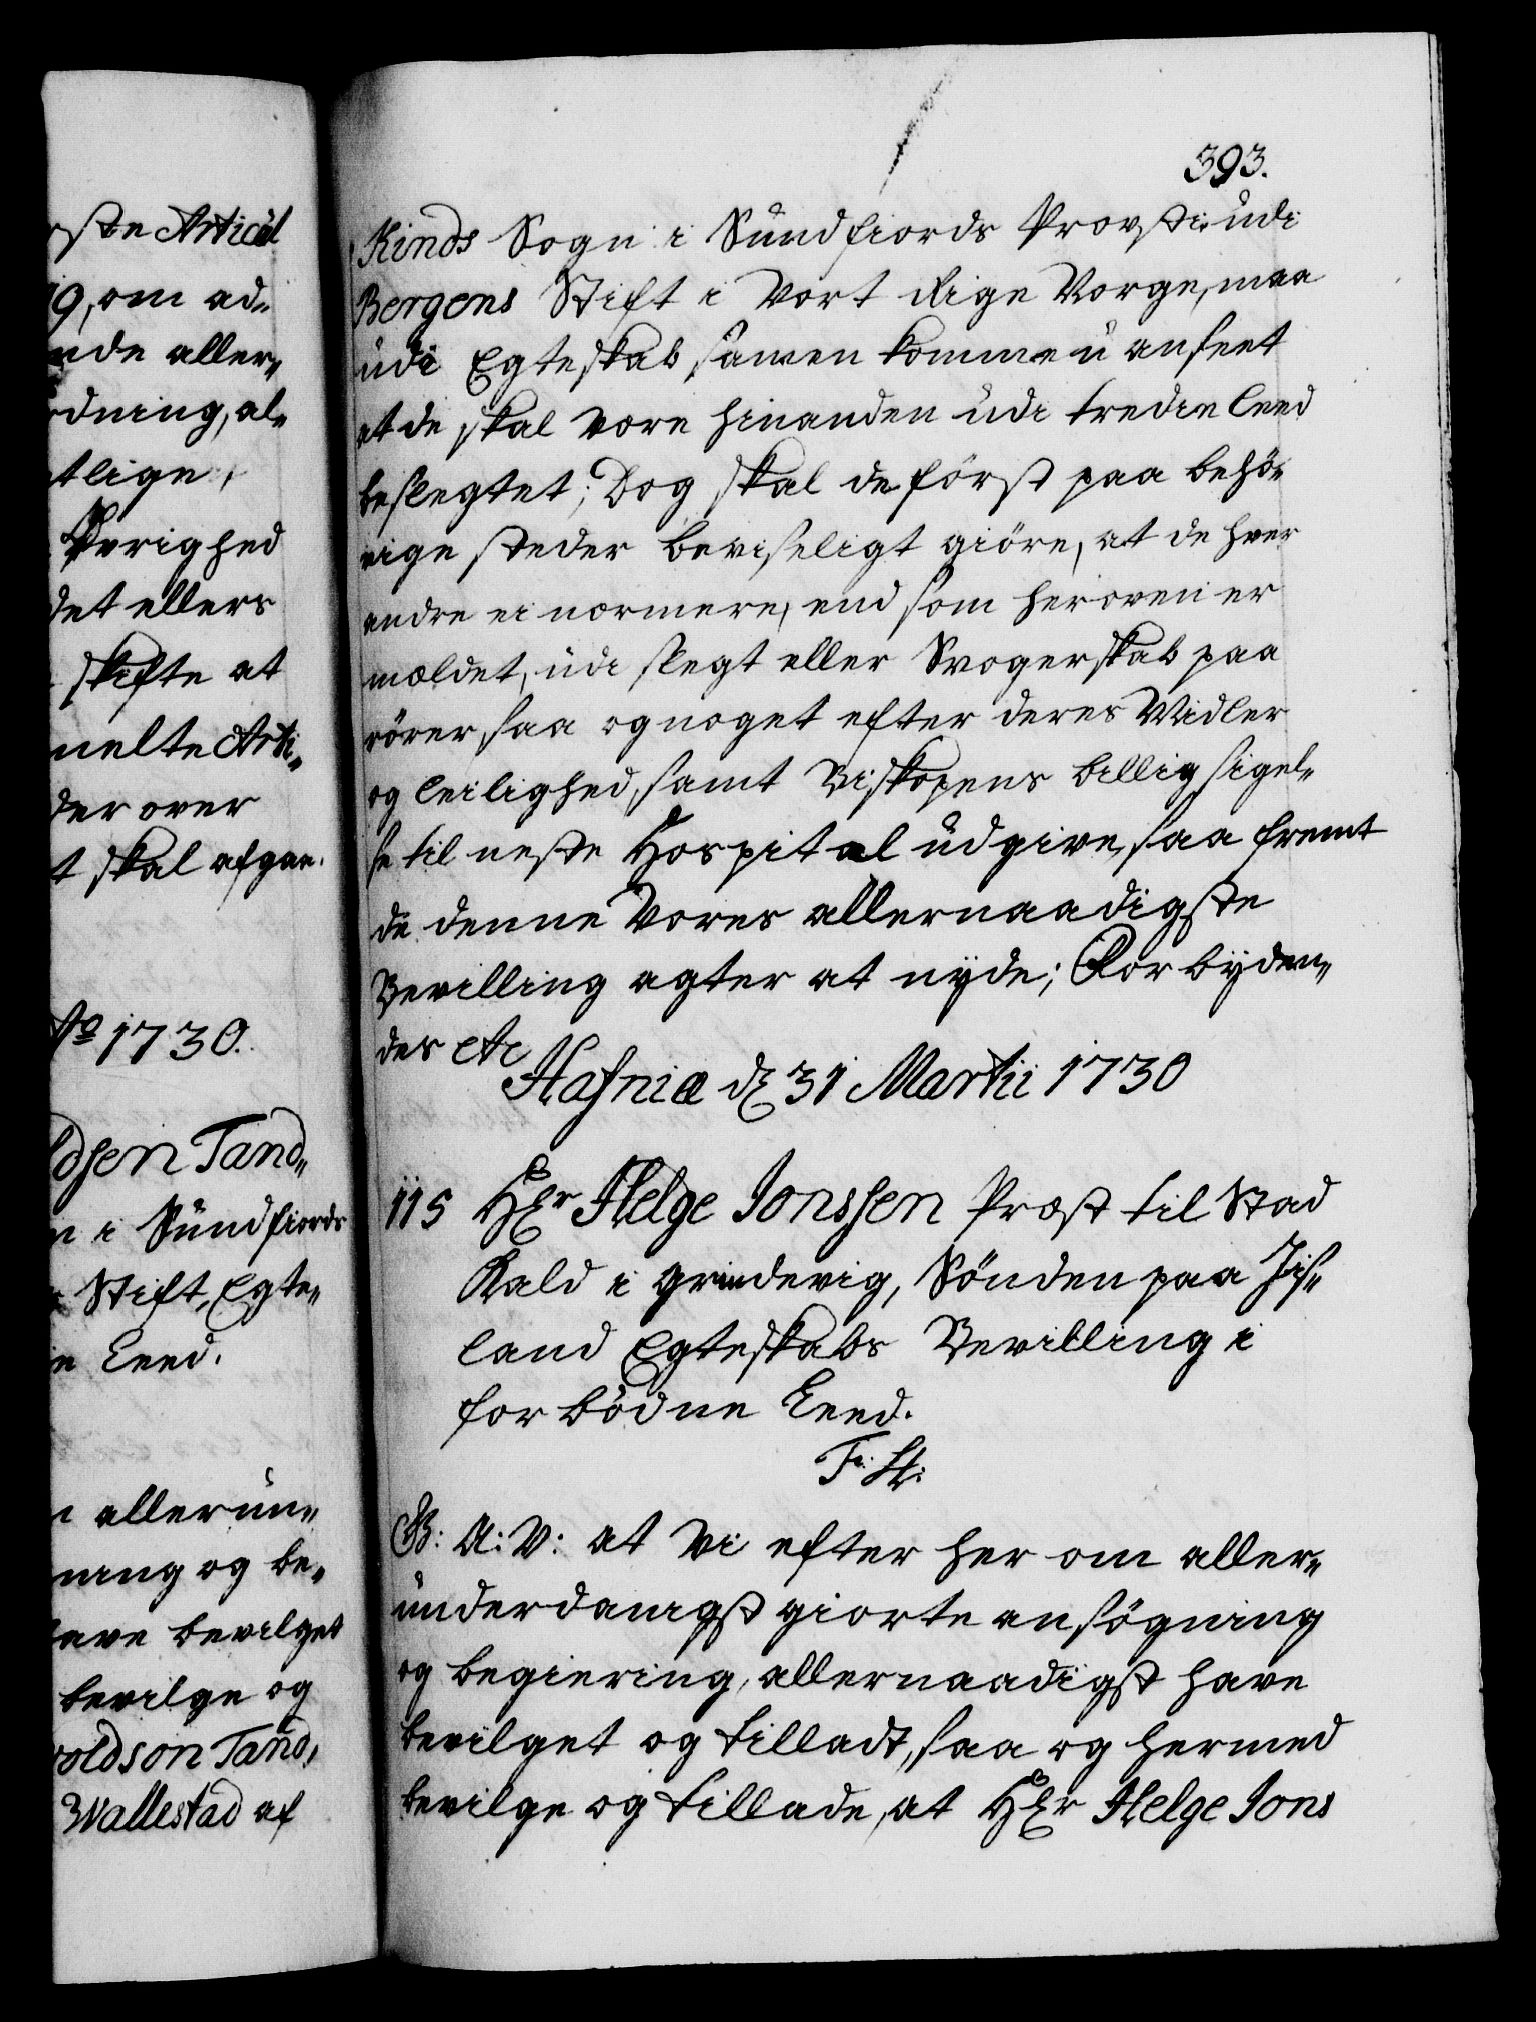 ste Articul
19, om ad„
nde aller„
dning, al„
tlige,
Øvrighed
det ellers
skifte at
melte Arti„
der over
t skal afgaa.
Ao 1730.
dsen Tand„
n i Sundfiords
Stift, Egte„
ie Leed.
n allerun„
ning og be„
have bevilget
bevilge og
voldson Tand,
Wallestad af
393.
Kinds Sogn i Sundfiords Provsti udi
Bergens Stift i Vort Rige Norge, maa
udi Egteskab samen komme u anseet
at de skal være hinanden udi tredie Leed
beslegtet; Dog skal de först paa behö„
rige steder beviseligt giöre, at de hver
andre ei nærmere, end som heroven er
mældet, udi slegt eller Svogerskab paa
rörer, saa og noget efter deres Midler
og leilighed, samt Biskopens billig sigel„
se til neste Hospital udgive, saa fremt
de denne Vores allernaadigste
Bevilling agter at nyde; Forbyden„
des etc
Hafniæ d 31 Martii 1730
115 HEr Helge Jonssen Præst til Stad
Kald i Grindevig, Sönden paa Jis„
land Egteskabs Bevilling i
forbödne Leed.
F: 4:
G: A: V: at Vi efter her om aller„
underdanigst giorte ansögning
og begiering, allernaadigst have
bevilget og tilladt, saa og hermed
bevilge og tillade, at HEr Helge Jons